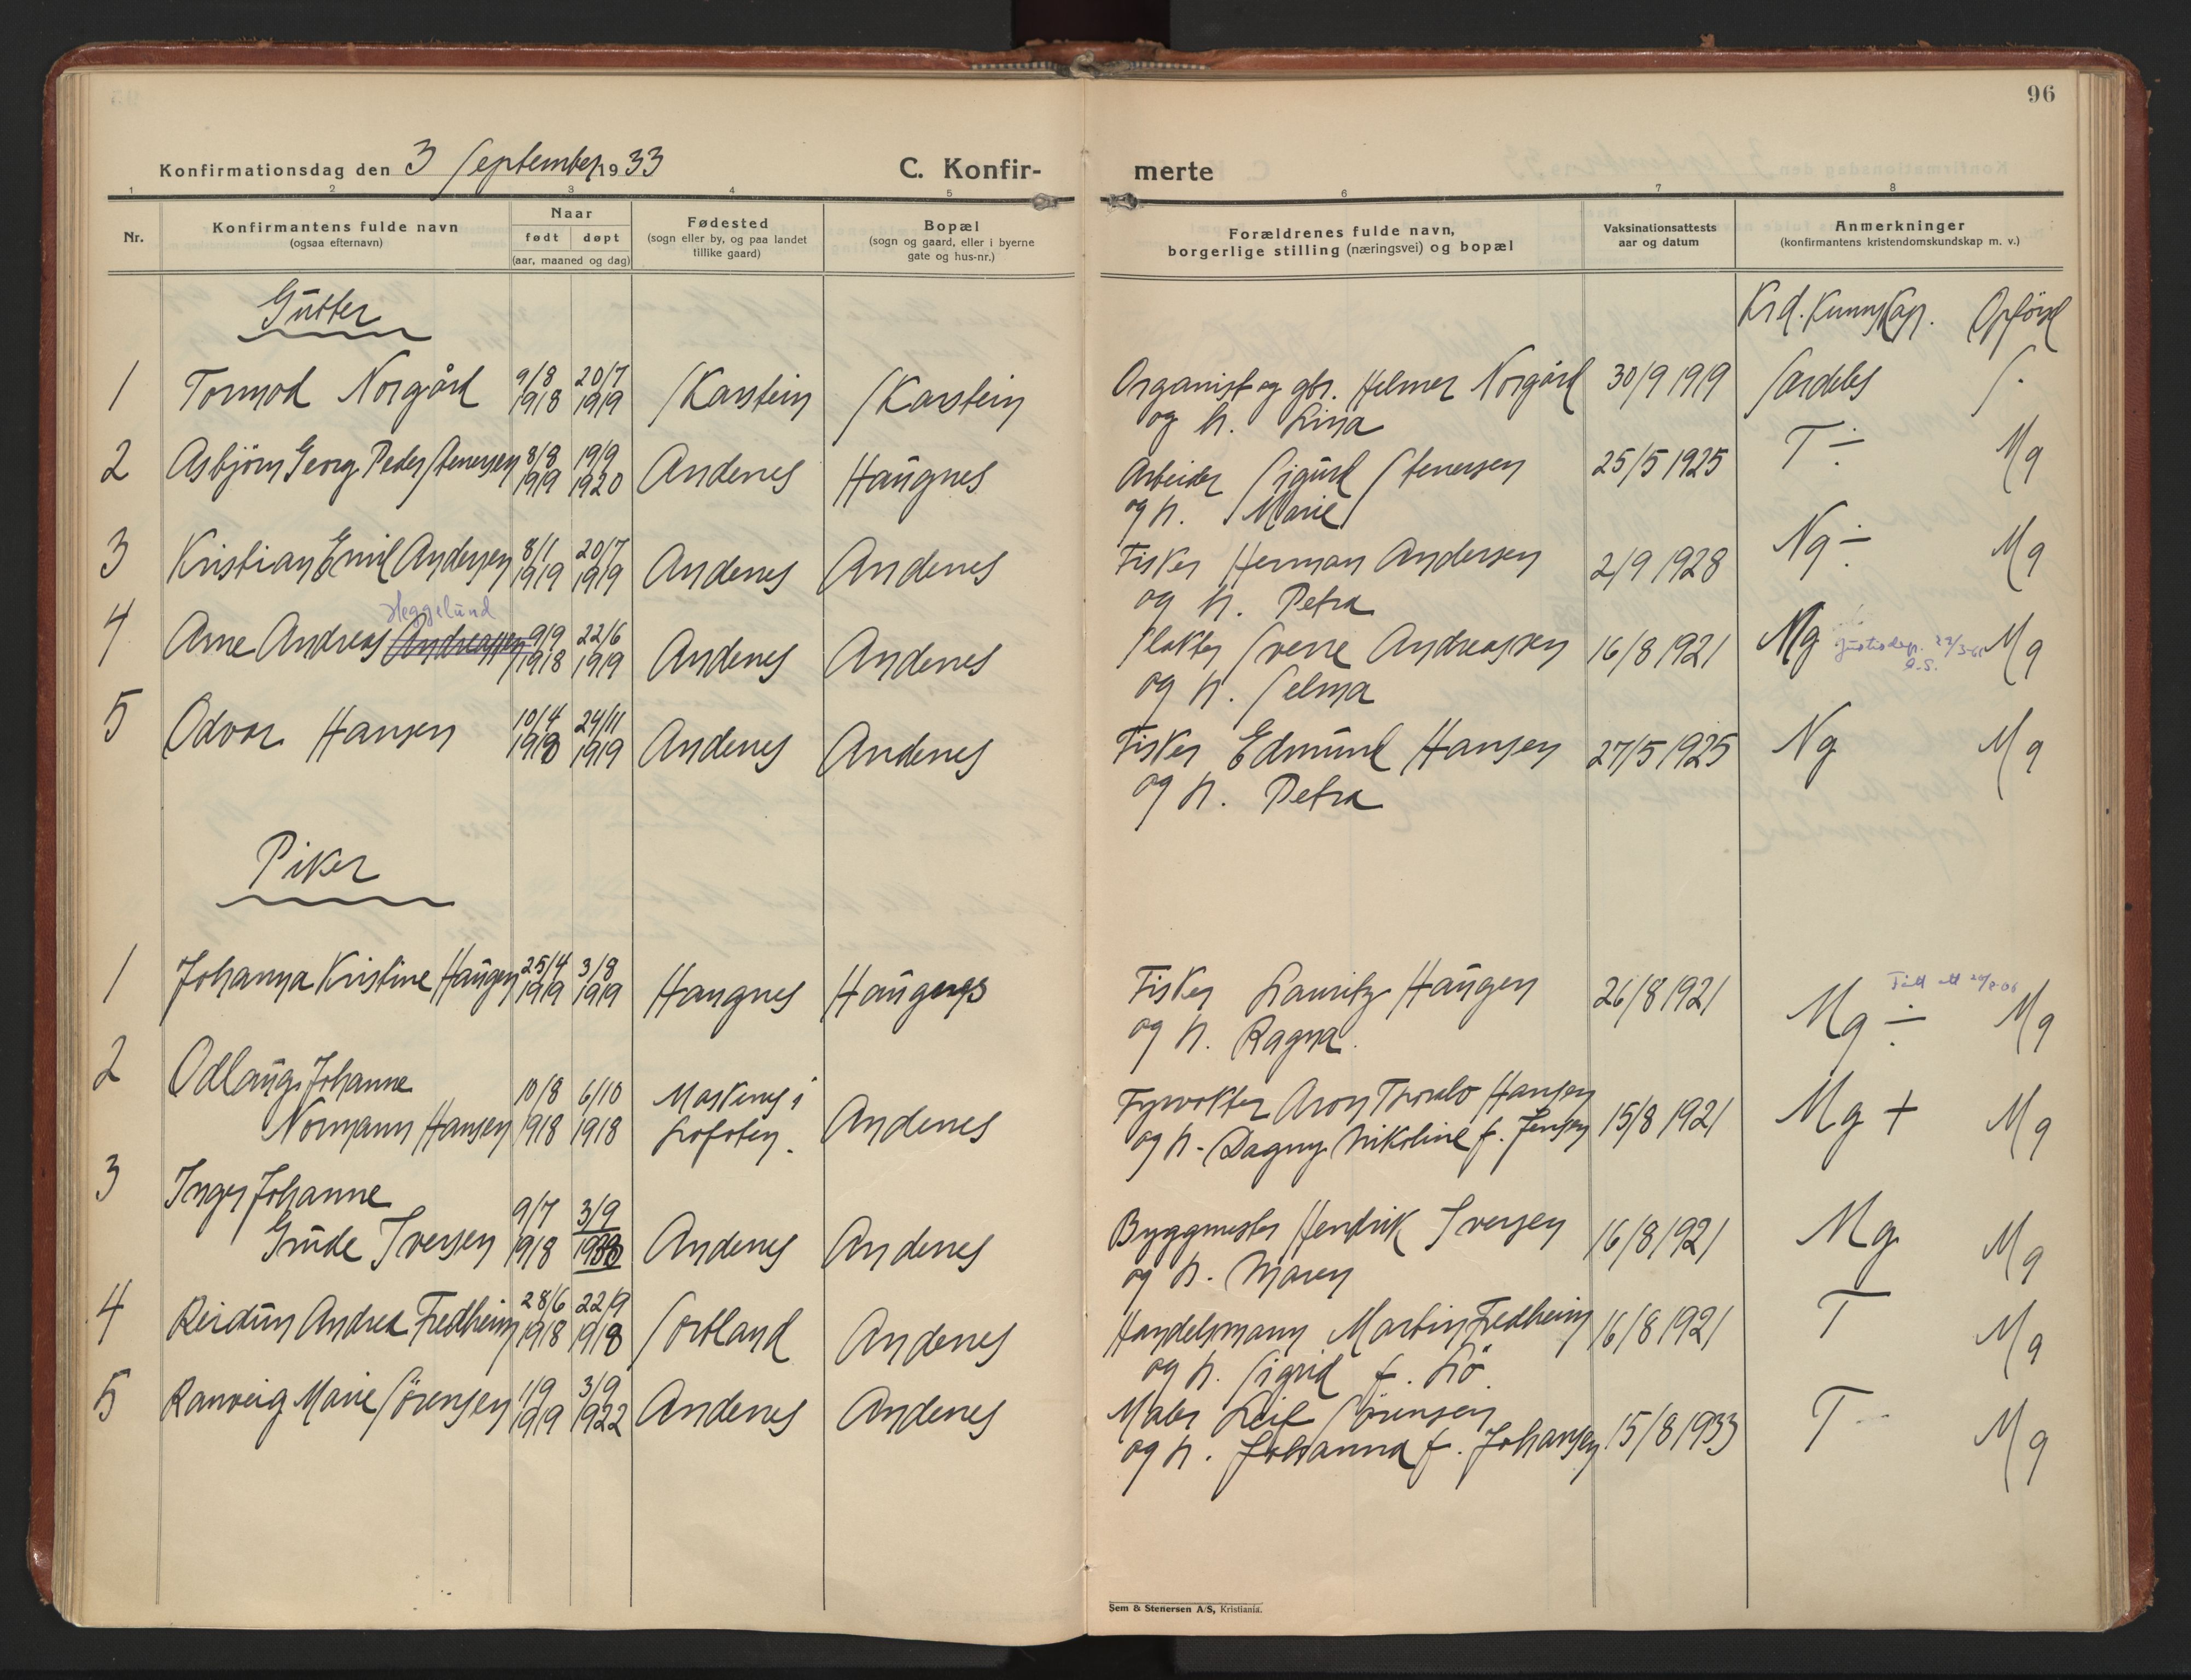 96
Konfirmationsdag den 3 September 1933
C. Konfir-
merte
1 2 3 4 5 6 7 8
Nr.
Konfirmantens fulde navn
(ogsaa efternavn)
Naar
født døpt
(aar, maaned og dag)
Fødested
(sogn eller by, og paa landet
tillike gaard)
Bopæl
(sogn og gaard, eller i byerne
gate og hus-nr.)
Forældrenes fulde navn,
borgerlige stilling (næringsvei) og bopæl
Vaksinationsattests
aar og datum
Anmerkninger
(konfirmantens kristendomskundskap m. v.)
Gutter
Krd. Kunnskap. Opförsel
1 Tormod Norgård 9/8 1918 20/7 1919 Skarstein Skarstein Organist og gbr. Helmer Norgård 30/9 1919 Særdeles S.
og h. Lina
2 Asbjörn Georg Peder Stenersen 8/8 1919 19/9 1920 Andenes Haugnes Arbeider Sigurd Stenersen 25/5 1925 T ÷ Mg
og h. Marie
3 Kristian Emil Andersen 8/1 1919 20/7 1919 Andenes Andenes Fisker Herman Andersen 2/9 1928 Ng ÷ Mg
og h. Petra
Heggelund
4 Arne Andreas Andreassen 9/9 1918 22/6 1919 Andenes Andenes Slakter Sverre Andreassen 16/8 1921 Mg Justisdep. Mg
og h. Selma
5 Odvar Hansen 10/4 1918 24/11 1919 Andenes Andenes Fisker Edmund Hansen 27/5 1925 Ng Mg
og h. Petra
Piker
1 Johanna Kristine Haugen 25/4 1919 3/8 1919 Haugnes Haugnes Fisker Lauritz Haugen 26/8 1921 Mg ÷ Mg
og h. Ragna.
2 Odlaug Johanne
Normann Hansen 10/8 1918 6/10 1918 Moskenes i Lofoten. Andenes Fyrvokter Aron Thorulo Hansen 15/8 1921 Mg + Mg
og h. Dagny Nikoline f. Jensen
3 Inger Johanne
Gude Iversen 9/7 1918 3/9 Andenes Andenes Byggmester Hendrik Iversen 16/8 1921 Mg Mg
og h. Maren
4 Reidun Andrea Fredheim 28/6 1918 22/9 1918 Sortland Andenes Handelsmann Martin Fredheim 16/8 1921 T Mg
og h. Sigrid f. Lö.
5 Ranveig Marie Sörensen 1/9 1919 3/9 1922 Andenes Andenes Maler Leif Sörensen 15/8 1933 T Mg
og h. Johanna f. Johansen
Sem & Stenersen A/S, Kristiania.